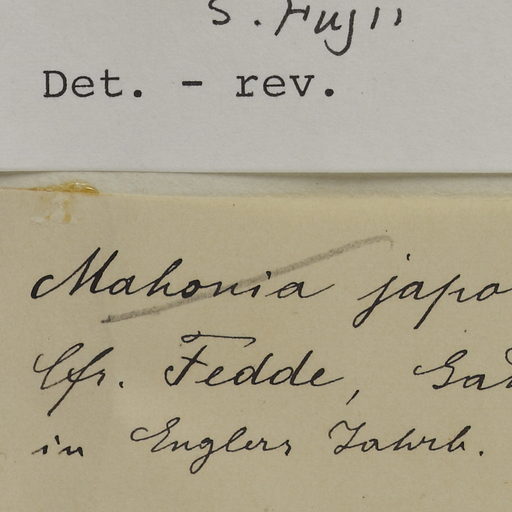 S. Fujii
Det. - rev.
Mahonia japo
Cfr. Fedde, Gat
in Englers Jahrb.